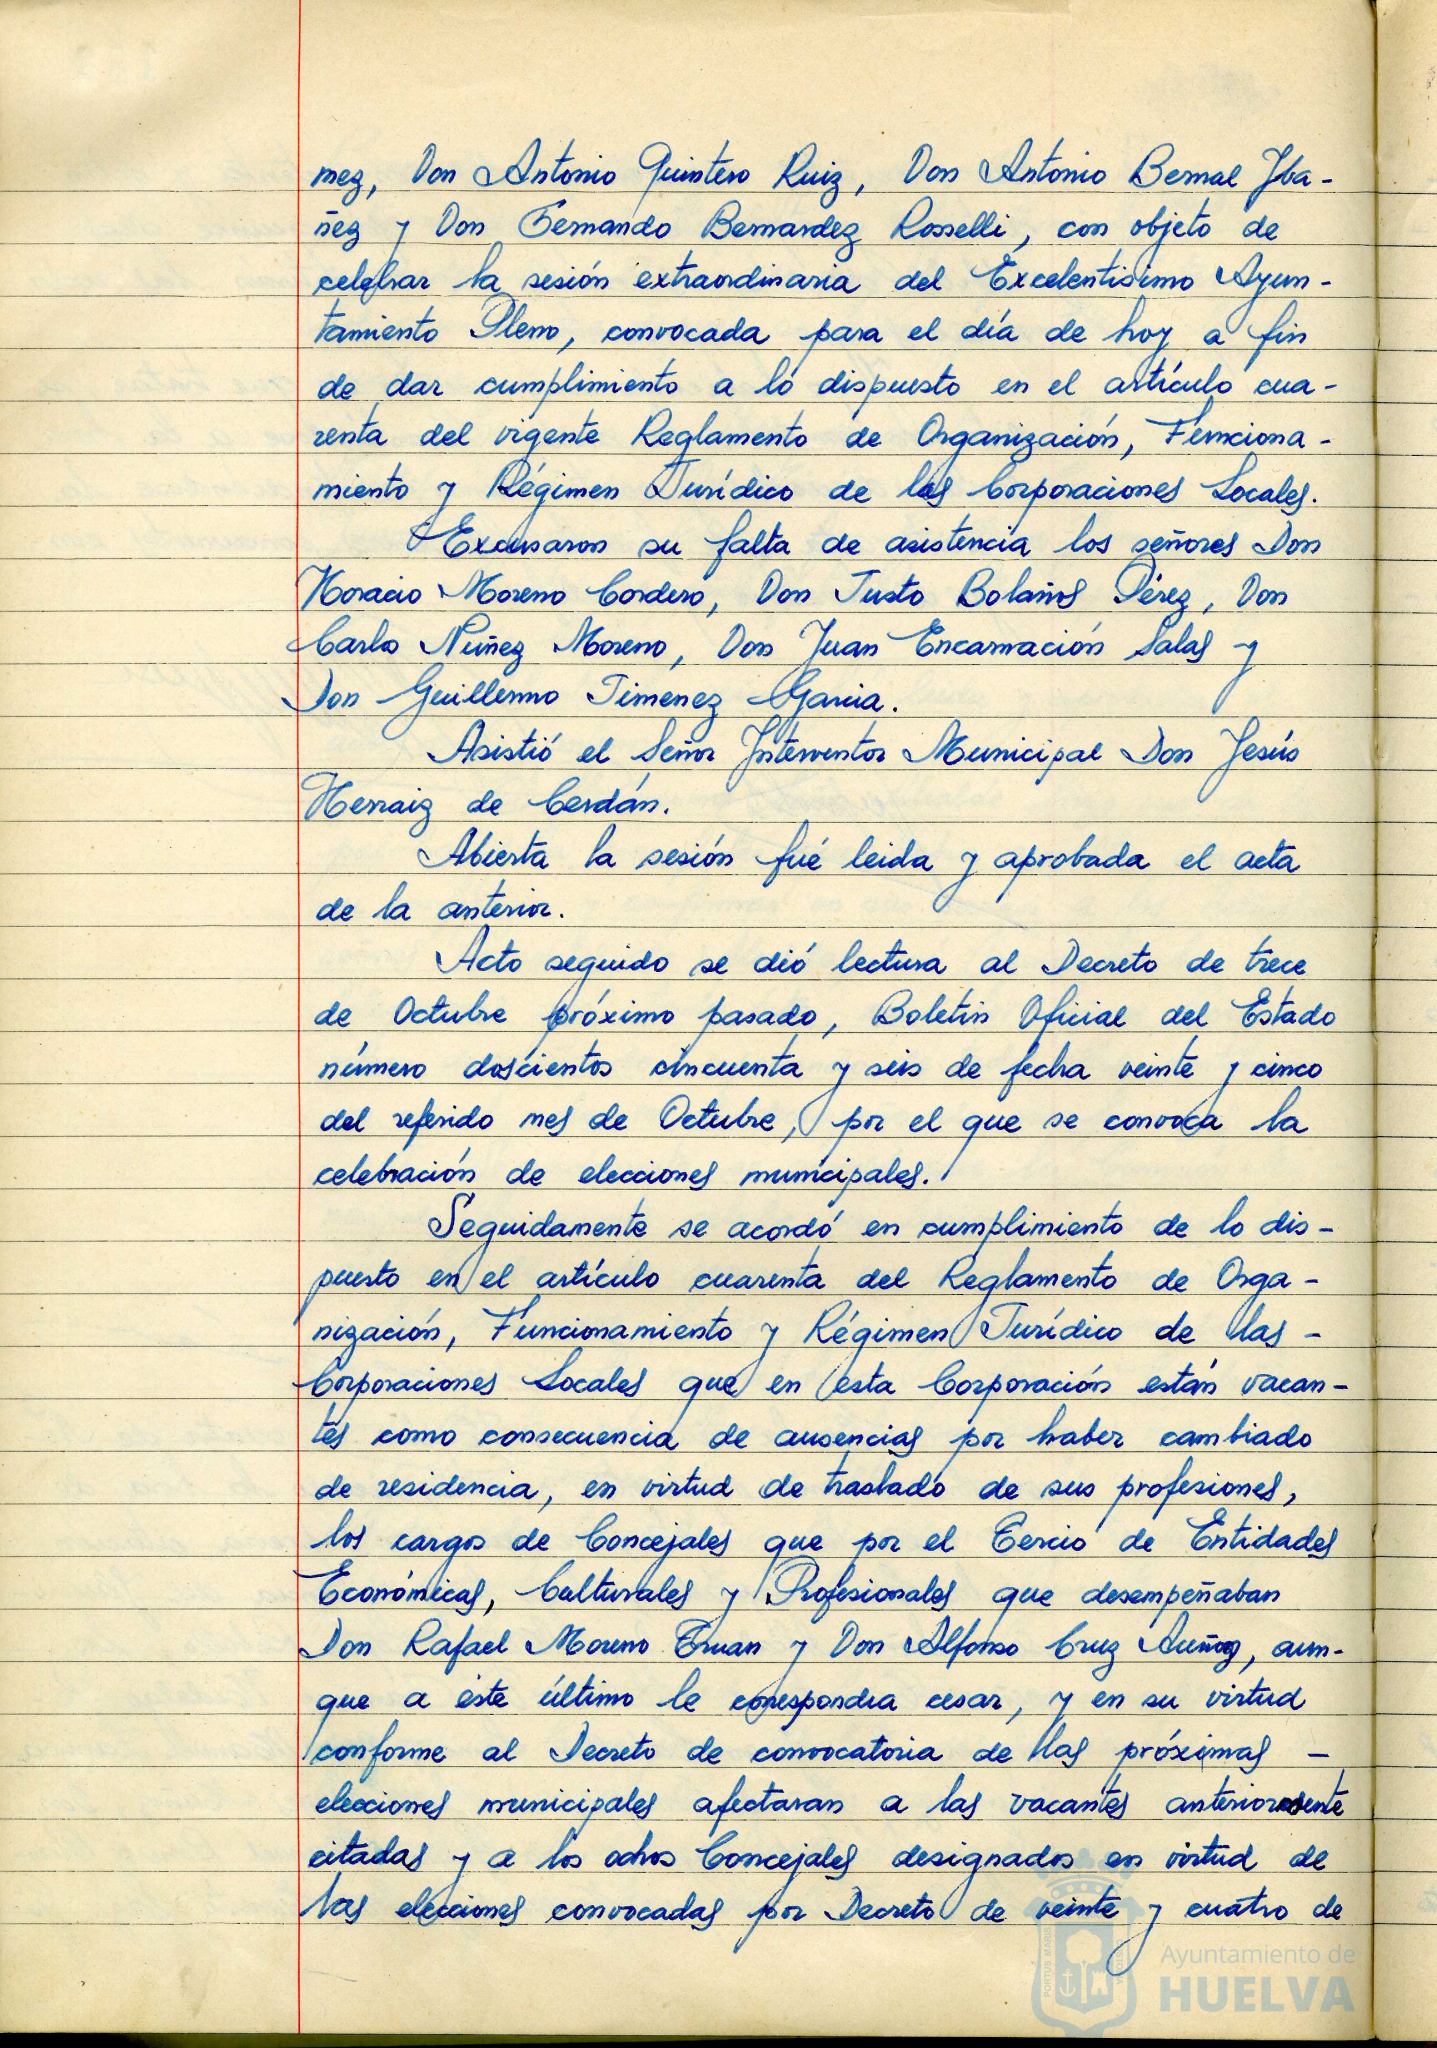 mez, Don Antonio Quintero Ruiz, Don Antonio Bernal Iba-
ñez y Don Fernando Bernardez Rosselli, con objeto de
celebrar la sesión extraordinaria del Excelentisimo Ayun-
tamiento Pleno, convocada para el día de hoy a fin
de dar cumplimiento a lo dispuesto en el artículo cua-
renta del vigente Reglamento de Organización, Funciona-
miento y Régimen Jurídico de las Corporaciones Locales.
Excusaron su falta de asistencia los señores Don
Horacio Moreno Cordero, Don Justo Bolaños Pérez, Don
Carlos Núñez Moreno, Don Juan Encarnación Salas y
Don Guillermo Jiménez Garcia.
Asistió el Señor Interventor Municipal Don Jesús
Herraiz de Cerdán.
Abierta la sesión fué leida y aprobada el acta
de la anterior.
Acto seguido se dió lectura al Decreto de trece
de Octubre próximo pasado, Boletin Oficial del Estado
número doscientos cincuenta y seis de fecha veinte y cinco
del referido mes de Octubre, por el que se convoca la
celebración de elecciones municipales.
Seguidamente se acordó en cumplimiento de lo dis-
puesto en el artículo cuarenta del Reglamento de Orga-
nización, Funcionamiento y Régimen Jurídico de las -
Corporaciones Locales que en esta Corporación están vacan-
tes como consecuencia de ausencias por haber cambiado
de residencia, en virtud de traslado de sus profesiones,
los cargos de Concejales que por el Tercio de Entidades
Económicas, Culturales y Profesionales que desempeñaban
Don Rafael Moreno Truan y Don Alfonso Cruz, aun-
que a éste último le correspondia cesar, y en su virtud
conforme al Decreto de convocatoria de las próximas -
elecciones municipales afectaran a las vacantes anteriormente
citadas y a los ochos Concejales designados en virtud de
las elecciones convocadas por Decreto de veinte y cuatro de
Ayuntamiento de
HUELVA